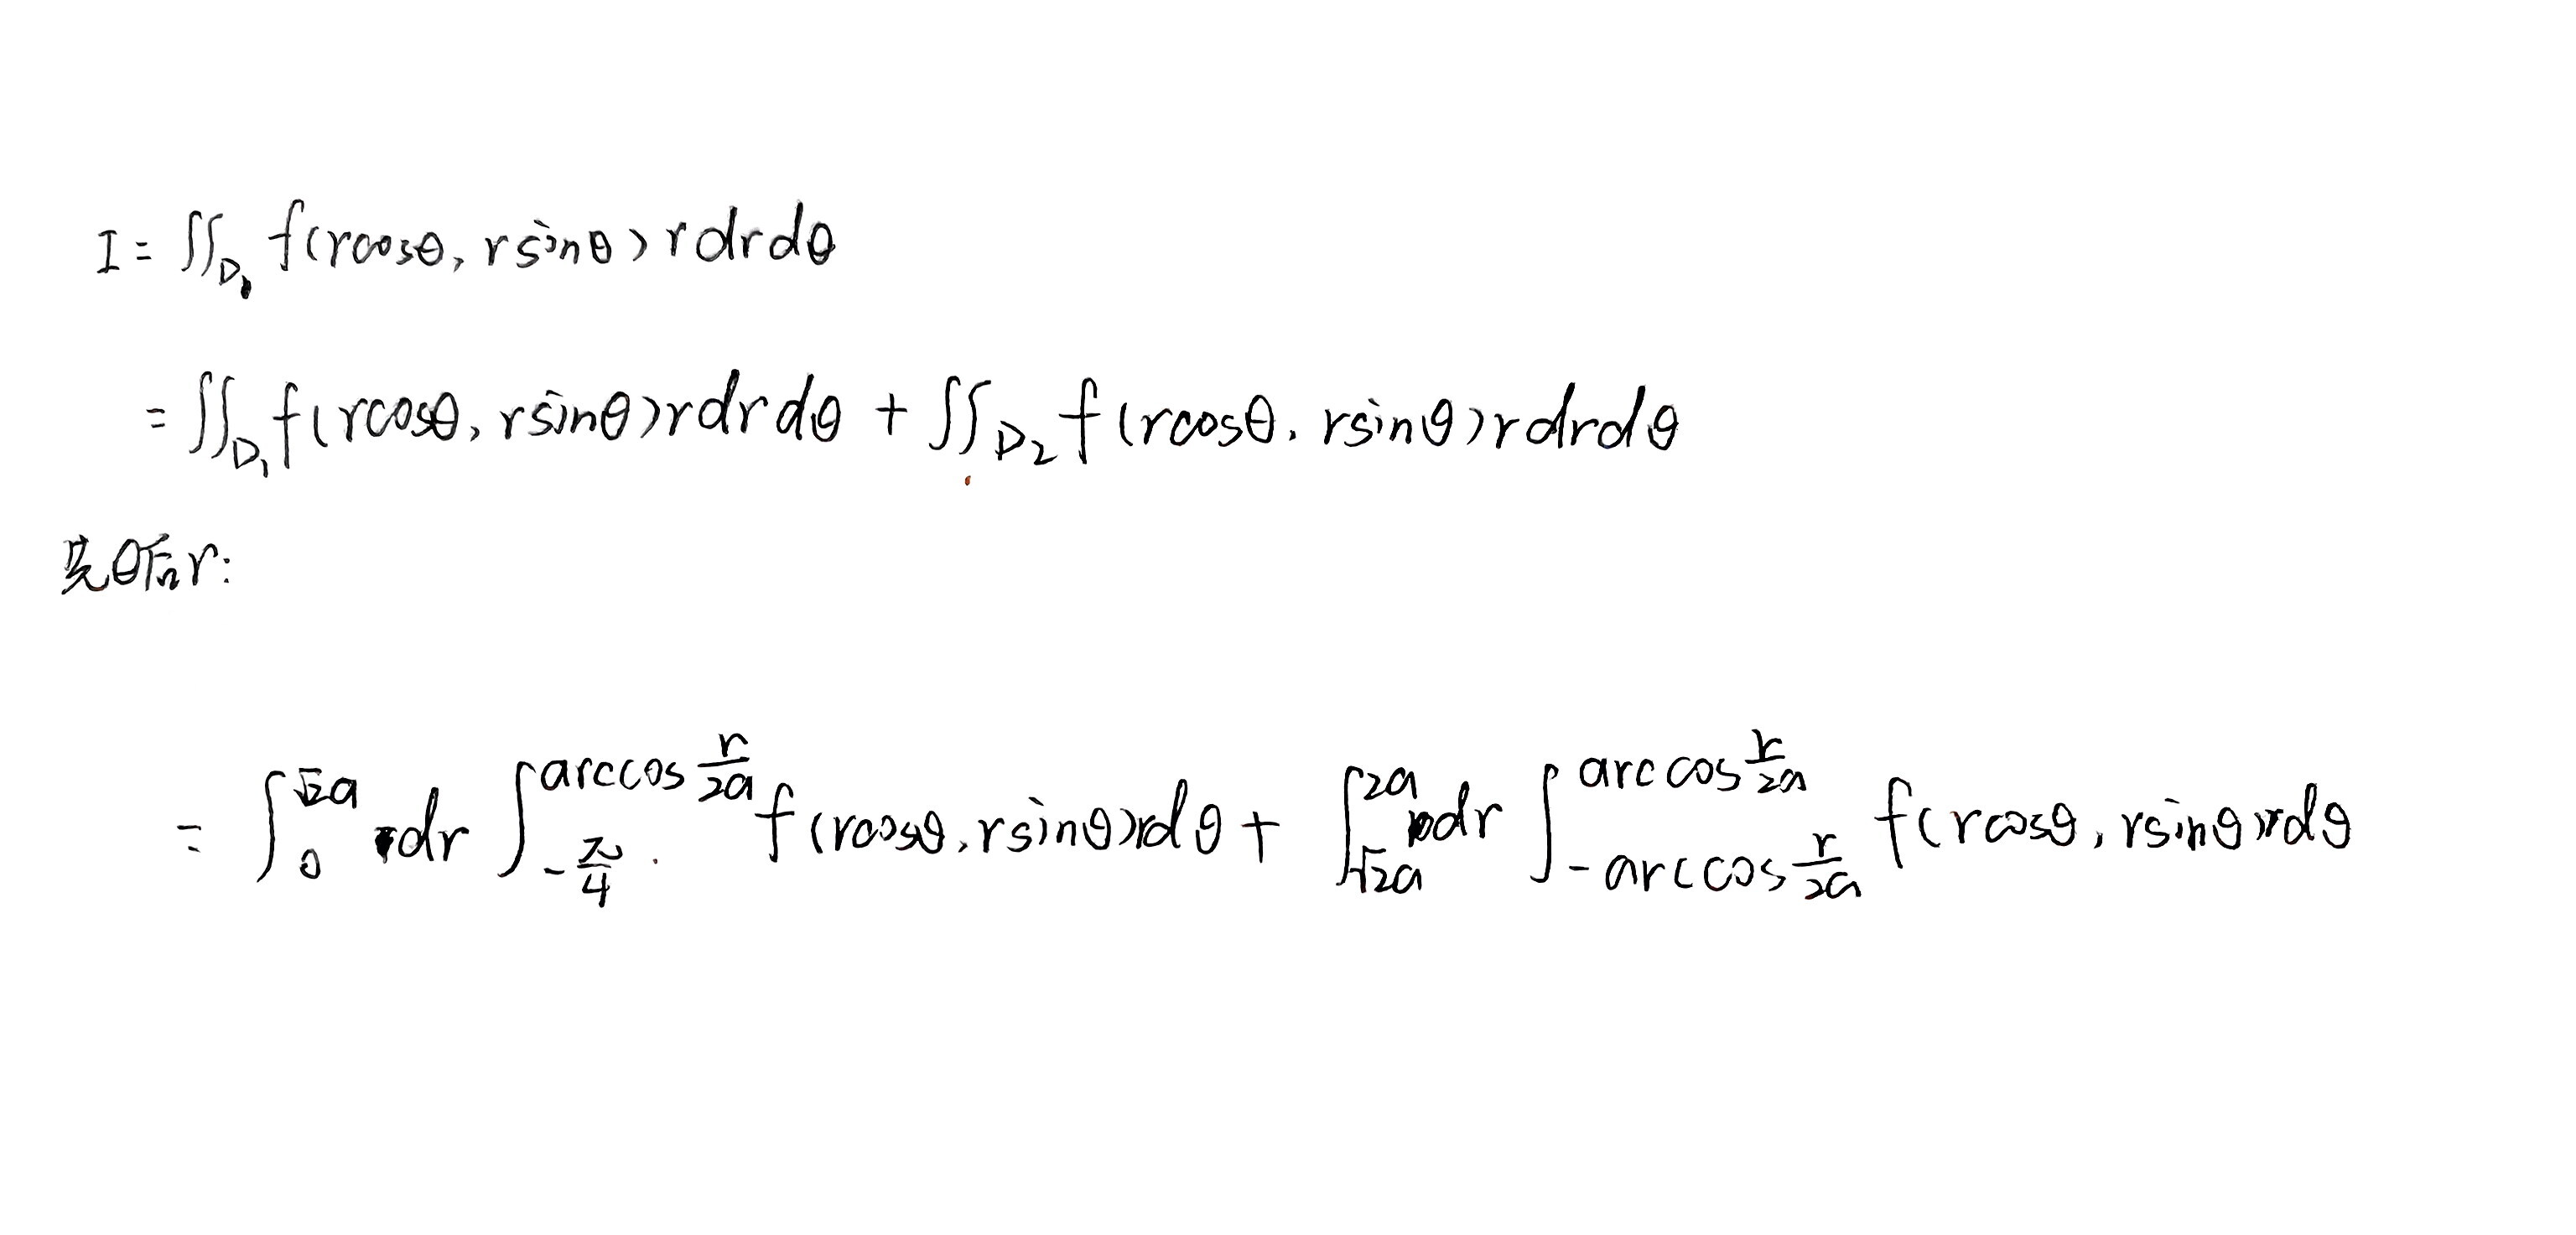 I = ∬_{D₁} f(rcosθ, rsinθ) rdrdθ
= ∬_{D₁} f(rcosθ, rsinθ)rdrdθ + ∬_{D₂} f(rcosθ, rsinθ)rdrdθ
先θ后r:
= ∫_0^{√2a} rdr ∫_{-π/4}^{arccos r/2a} f(rcosθ, rsinθ)rdθ + ∫_{√2a}^{2a} rdr ∫_{-arccos r/2a}^{arccos r/2a} f(rcosθ, rsinθ)rdθ